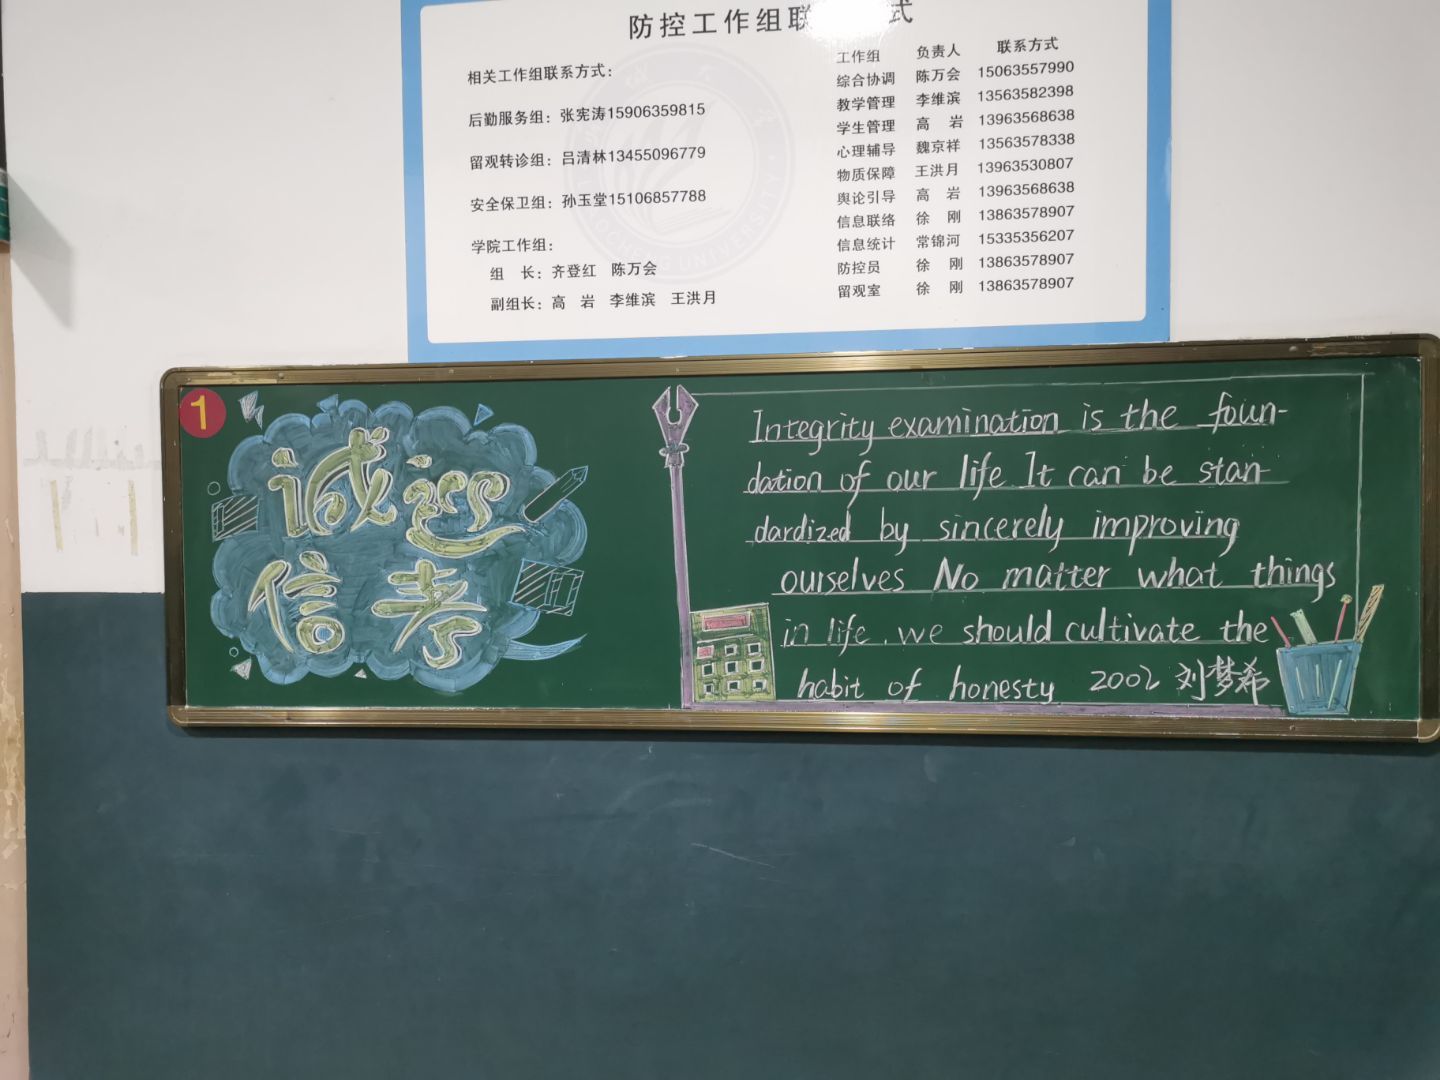 防控工作组联 式
相关工作组联系方式：
后勤服务组：张宪涛15906359815
留观转诊组：吕清林13455096779
安全保卫组：孙玉堂15106857788
学院工作组：
组 长：齐登红 陈万会
副组长：高 岩 李维滨 王洪月
工作组 负责人 联系方式
综合协调 陈万会 15063557990
教学管理 李维滨 13563582398
学生管理 高 岩 13963568638
心理辅导 魏京祥 13563578338
物质保障 王洪月 13963530807
舆论引导 高 岩 13963568638
信息联络 徐 刚 13863578907
信息统计 常锦河 15335356207
防控员 徐 刚 13863578907
留观室 徐 刚 13863578907
UNIVERSITY
1
诚迎
信考
Integrity examination is the foun-
dation of our life It can be stan-
dardized by sincerely improving
ourselves No matter what things
in life, we should cultivate the
habit of honesty 2002 刘梦希